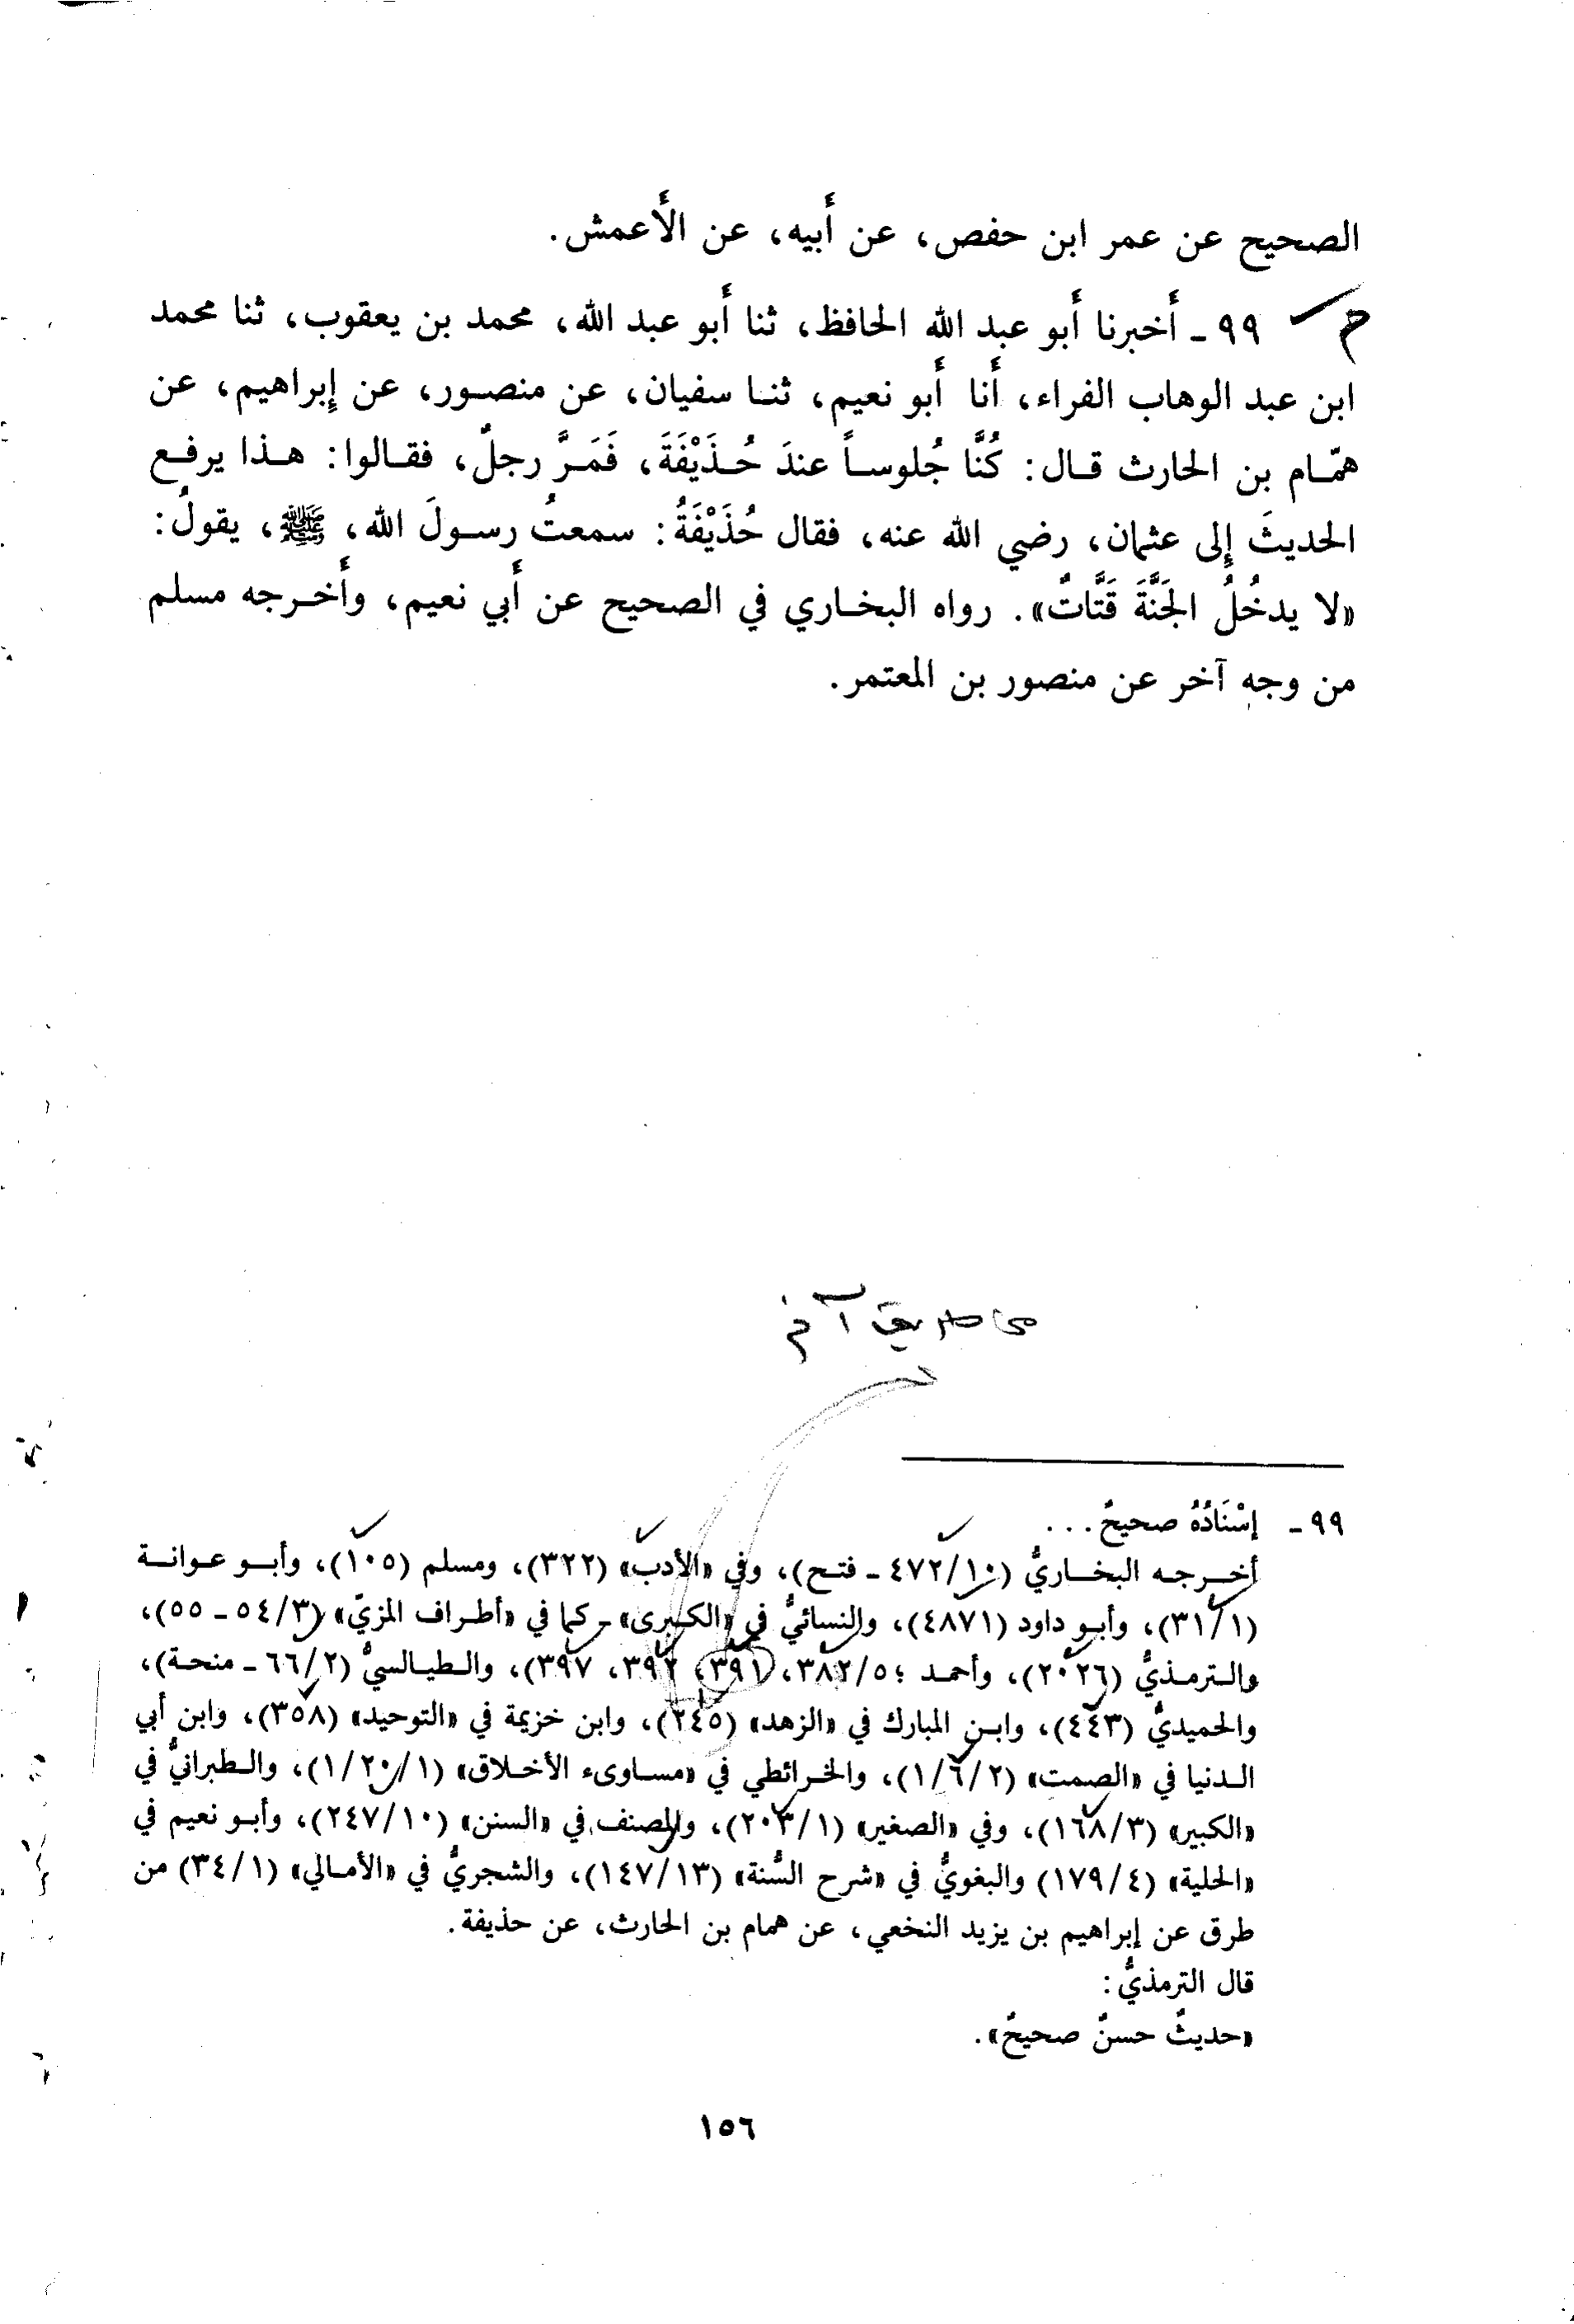 الصحيح عن عمر ابن حفص، عن أَبيه، عن الأَعمش.
م ٩٩ ـ أَخبرنا أَبو عبد الله الحافظ، ثنا أَبو عبد الله، محمد بن يعقوب، ثنا محمد
ابن عبد الوهاب الفراء، أَنا أَبو نعيم، ثنا سفيان، عن منصور، عن إِبراهيم، عن
همّام بن الحارث قال: كُنَّا جُلوساً عندَ حُذَيْفَةَ، فَمَرَّ رجلٌ، فقالوا: هذا يرفع
الحديثَ إِلى عثمان، رضي الله عنه، فقال حُذَيْفَةُ: سمعتُ رسولَ الله، ﷺ، يقولُ:
«لا يدخُلُ الجَنَّةَ قَتَّاتٌ». رواه البخاري في الصحيح عن أَبي نعيم، وأَخرجه مسلم
من وجه آخر عن منصور بن المعتمر.
من طريق آخر
٩٩ ـ إسْنَادُهُ صحيحٌ...
أخرجه البخاريُّ (٤٧٢/١٠ ـ فتح)، وفي «الأدب» (٣٢٢)، ومسلم (١٠٥)، وأبو عوانة
(٣١/١)، وأبو داود (٤٨٧١)، والنسائيُّ في «الكبرى» ـ كما في «أطراف المزيّ» (٥٤/٣ ـ ٥٥)،
والترمذيُّ (٢٠٢٦)، وأحمد ؛ ٣٨٢/٥، ٣٩١، ٣٩٢، ٣٩٧)، والطيالسيُّ (٦٦/٢ ـ منحة)،
والحميديُّ (٤٤٣)، وابن المبارك في «الزهد» (٢٤٥)، وابن خزيمة في «التوحيد» (٣٥٨)، وابن أبي
الدنيا في «الصمت» (١/٦/٢)، والخرائطي في «مساوىء الأخلاق» (١/٢٠/١)، والطبرانيُّ في
«الكبير» (١٦٨/٣)، وفي «الصغير» (٢٠٣/١)، والمصنف في «السنن» (٢٤٧/١٠)، وأبو نعيم في
«الحلية» (١٧٩/٤) والبغويُّ في «شرح السُّنة» (١٤٧/١٣)، والشجريُّ في «الأمالي» (٣٤/١) من
طرق عن إبراهيم بن يزيد النخعي، عن همام بن الحارث، عن حذيفة.
قال الترمذيُّ:
«حديثٌ حسنٌ صحيحٌ».
١٥٦